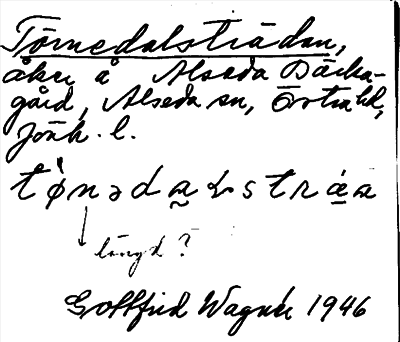 Törnedalsträdan,
åker å Alseda Backe-
gård, Alseda sn, Östra hd,
Jönk. l.
tø̀nəda̰ɽstrá̱a
längd?
Gottfrid Wagnér 1946